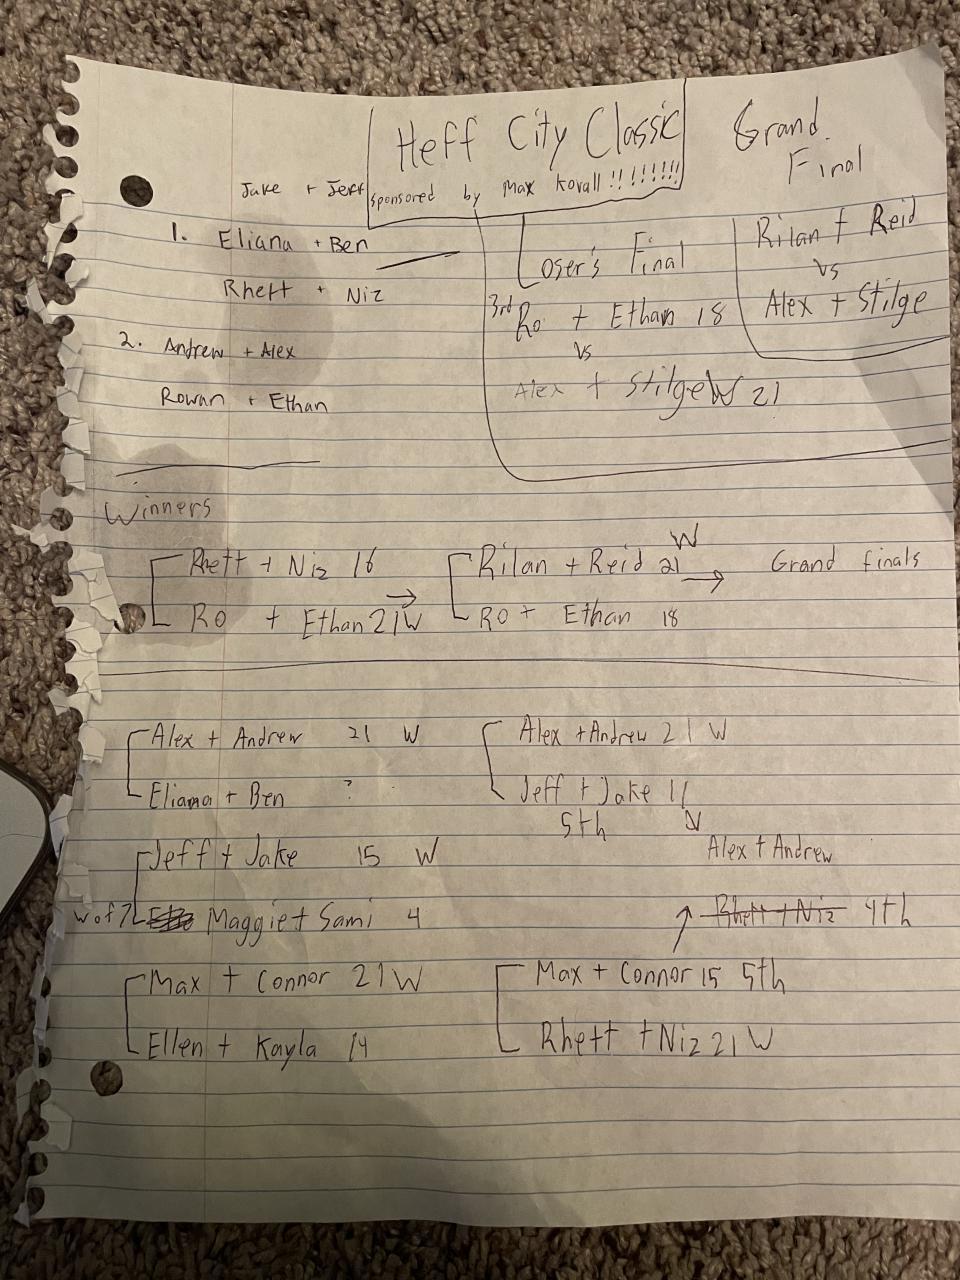 Heff City Classic
sponsored by Max Kovall !!!!!!!!!
Grand
Final
Rilan + Reid
vs
Alex + Stilge
Jake + Jeff
1. Eliana + Ben
Rhett + Niz
2. Andrew + Alex
Rowan + Ethan
Loser's Final
3rd Ro + Ethan 18
vs
Alex + Stilge W 21
Winners
Rhett + Niz 16
Ro + Ethan 21 W
Rilan + Reid 21 W
Ro + Ethan 18
Grand finals
Alex + Andrew 21 W
Eliana + Ben ?
Alex + Andrew 21 W
Jeff + Jake 11
5th
Jeff + Jake 15 W
W of 7 Maggie + Sami 4
Alex + Andrew
Rhett + Niz 4th
Max + Connor 21 W
Ellen + Kayla 14
Max + Connor 15 5th
Rhett + Niz 21 W